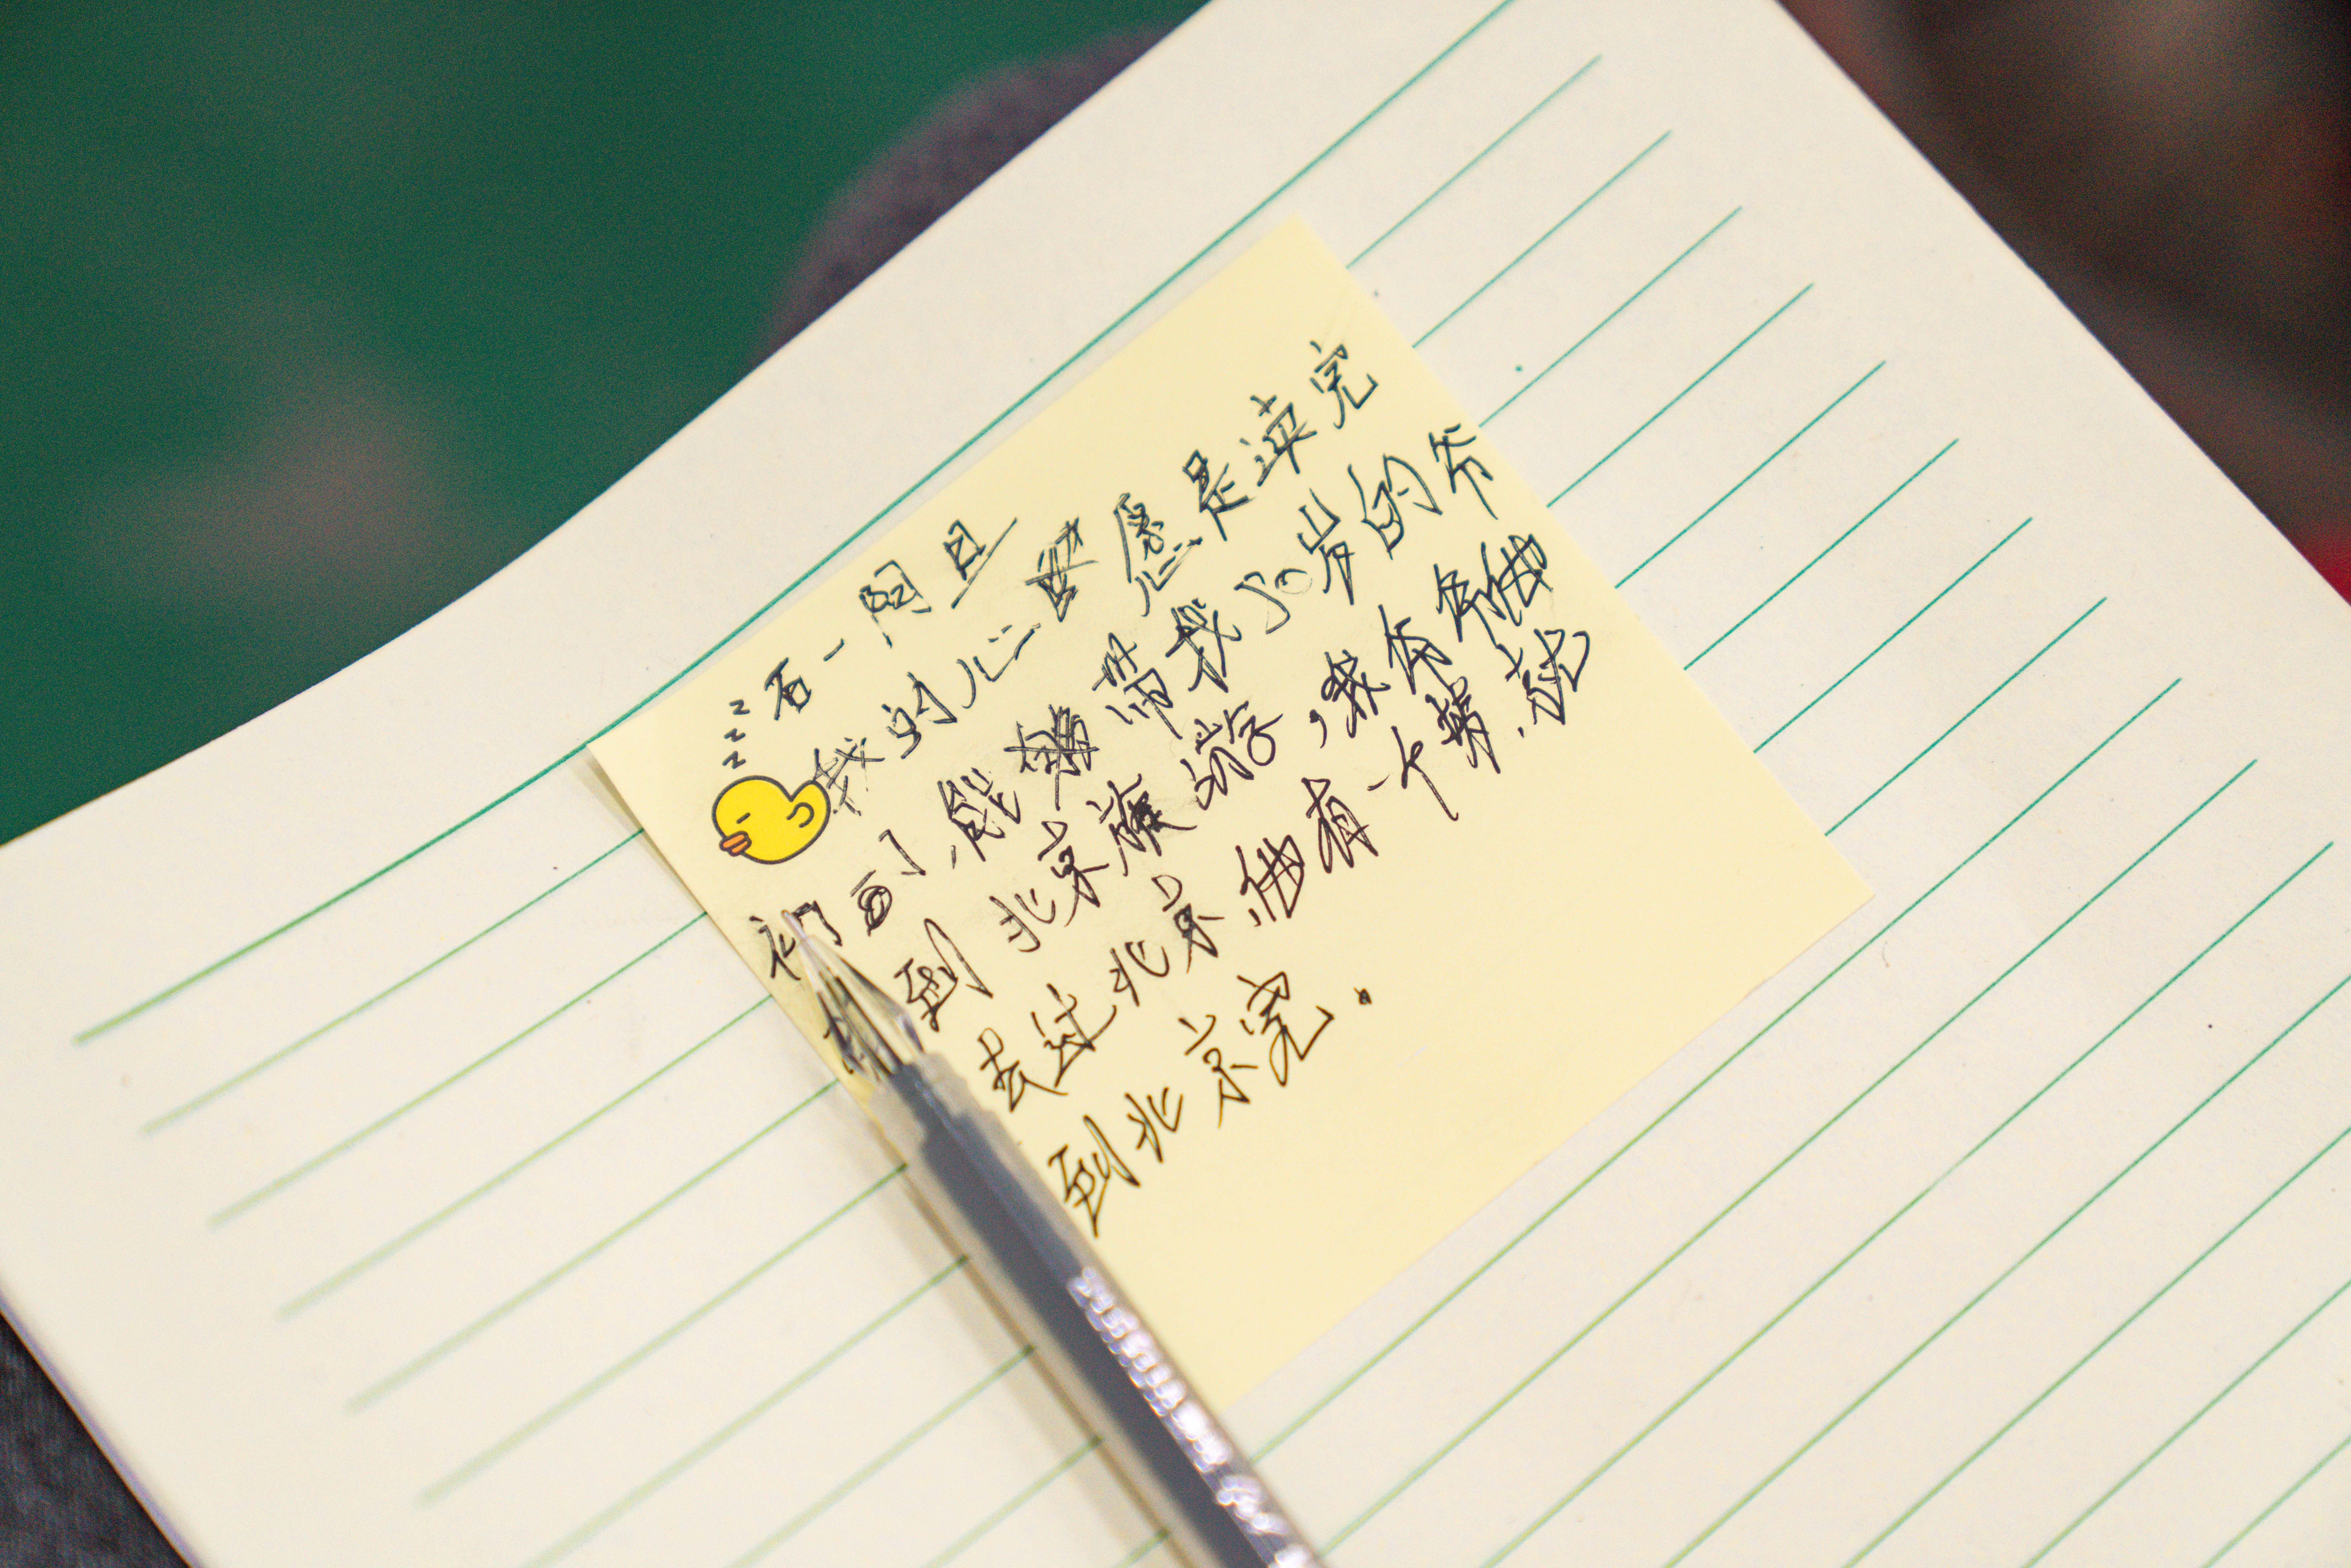 z z z
石一阿旦
我的心愿是读完
初 了,能带我50岁的爷
到北京旅游,
去过北京他有一个梦.就
到北京完.